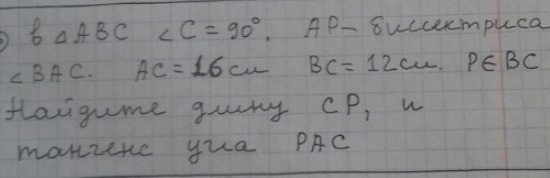 в △ABC ∠C = 90°. AP - биссектриса
∠BAC. AC = 16 см BC = 12 см. P∈BC
Найдите длину CP, и
тангенс угла PAC